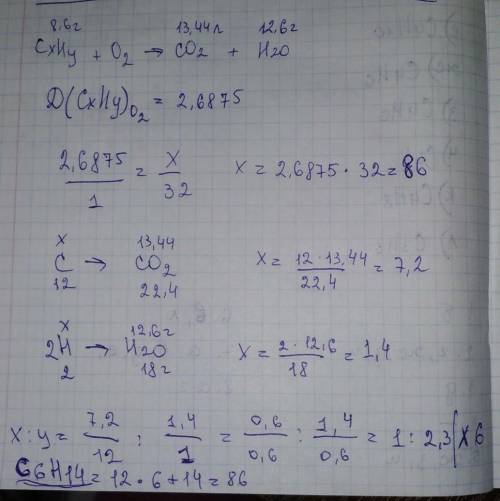 8,6г 13,44л 12,6г
CxHy + O2 → CO2 + H2O
D(CxHy)O2 = 2,6875
2,6875/1 = x/32 x = 2,6875 · 32 = 86
x 13,44
C → CO2 x = 12 · 13,44/22,4 = 7,2
12 22,4
x 12,6г
2H → H2O x = 2 · 12,6/18 = 1,4
2 18г
x : y = 7,2/12 : 1,4/1 = 0,6/0,6 : 1,4/0,6 = 1 : 2,3 | x 6
C6H14 = 12 · 6 + 14 = 86